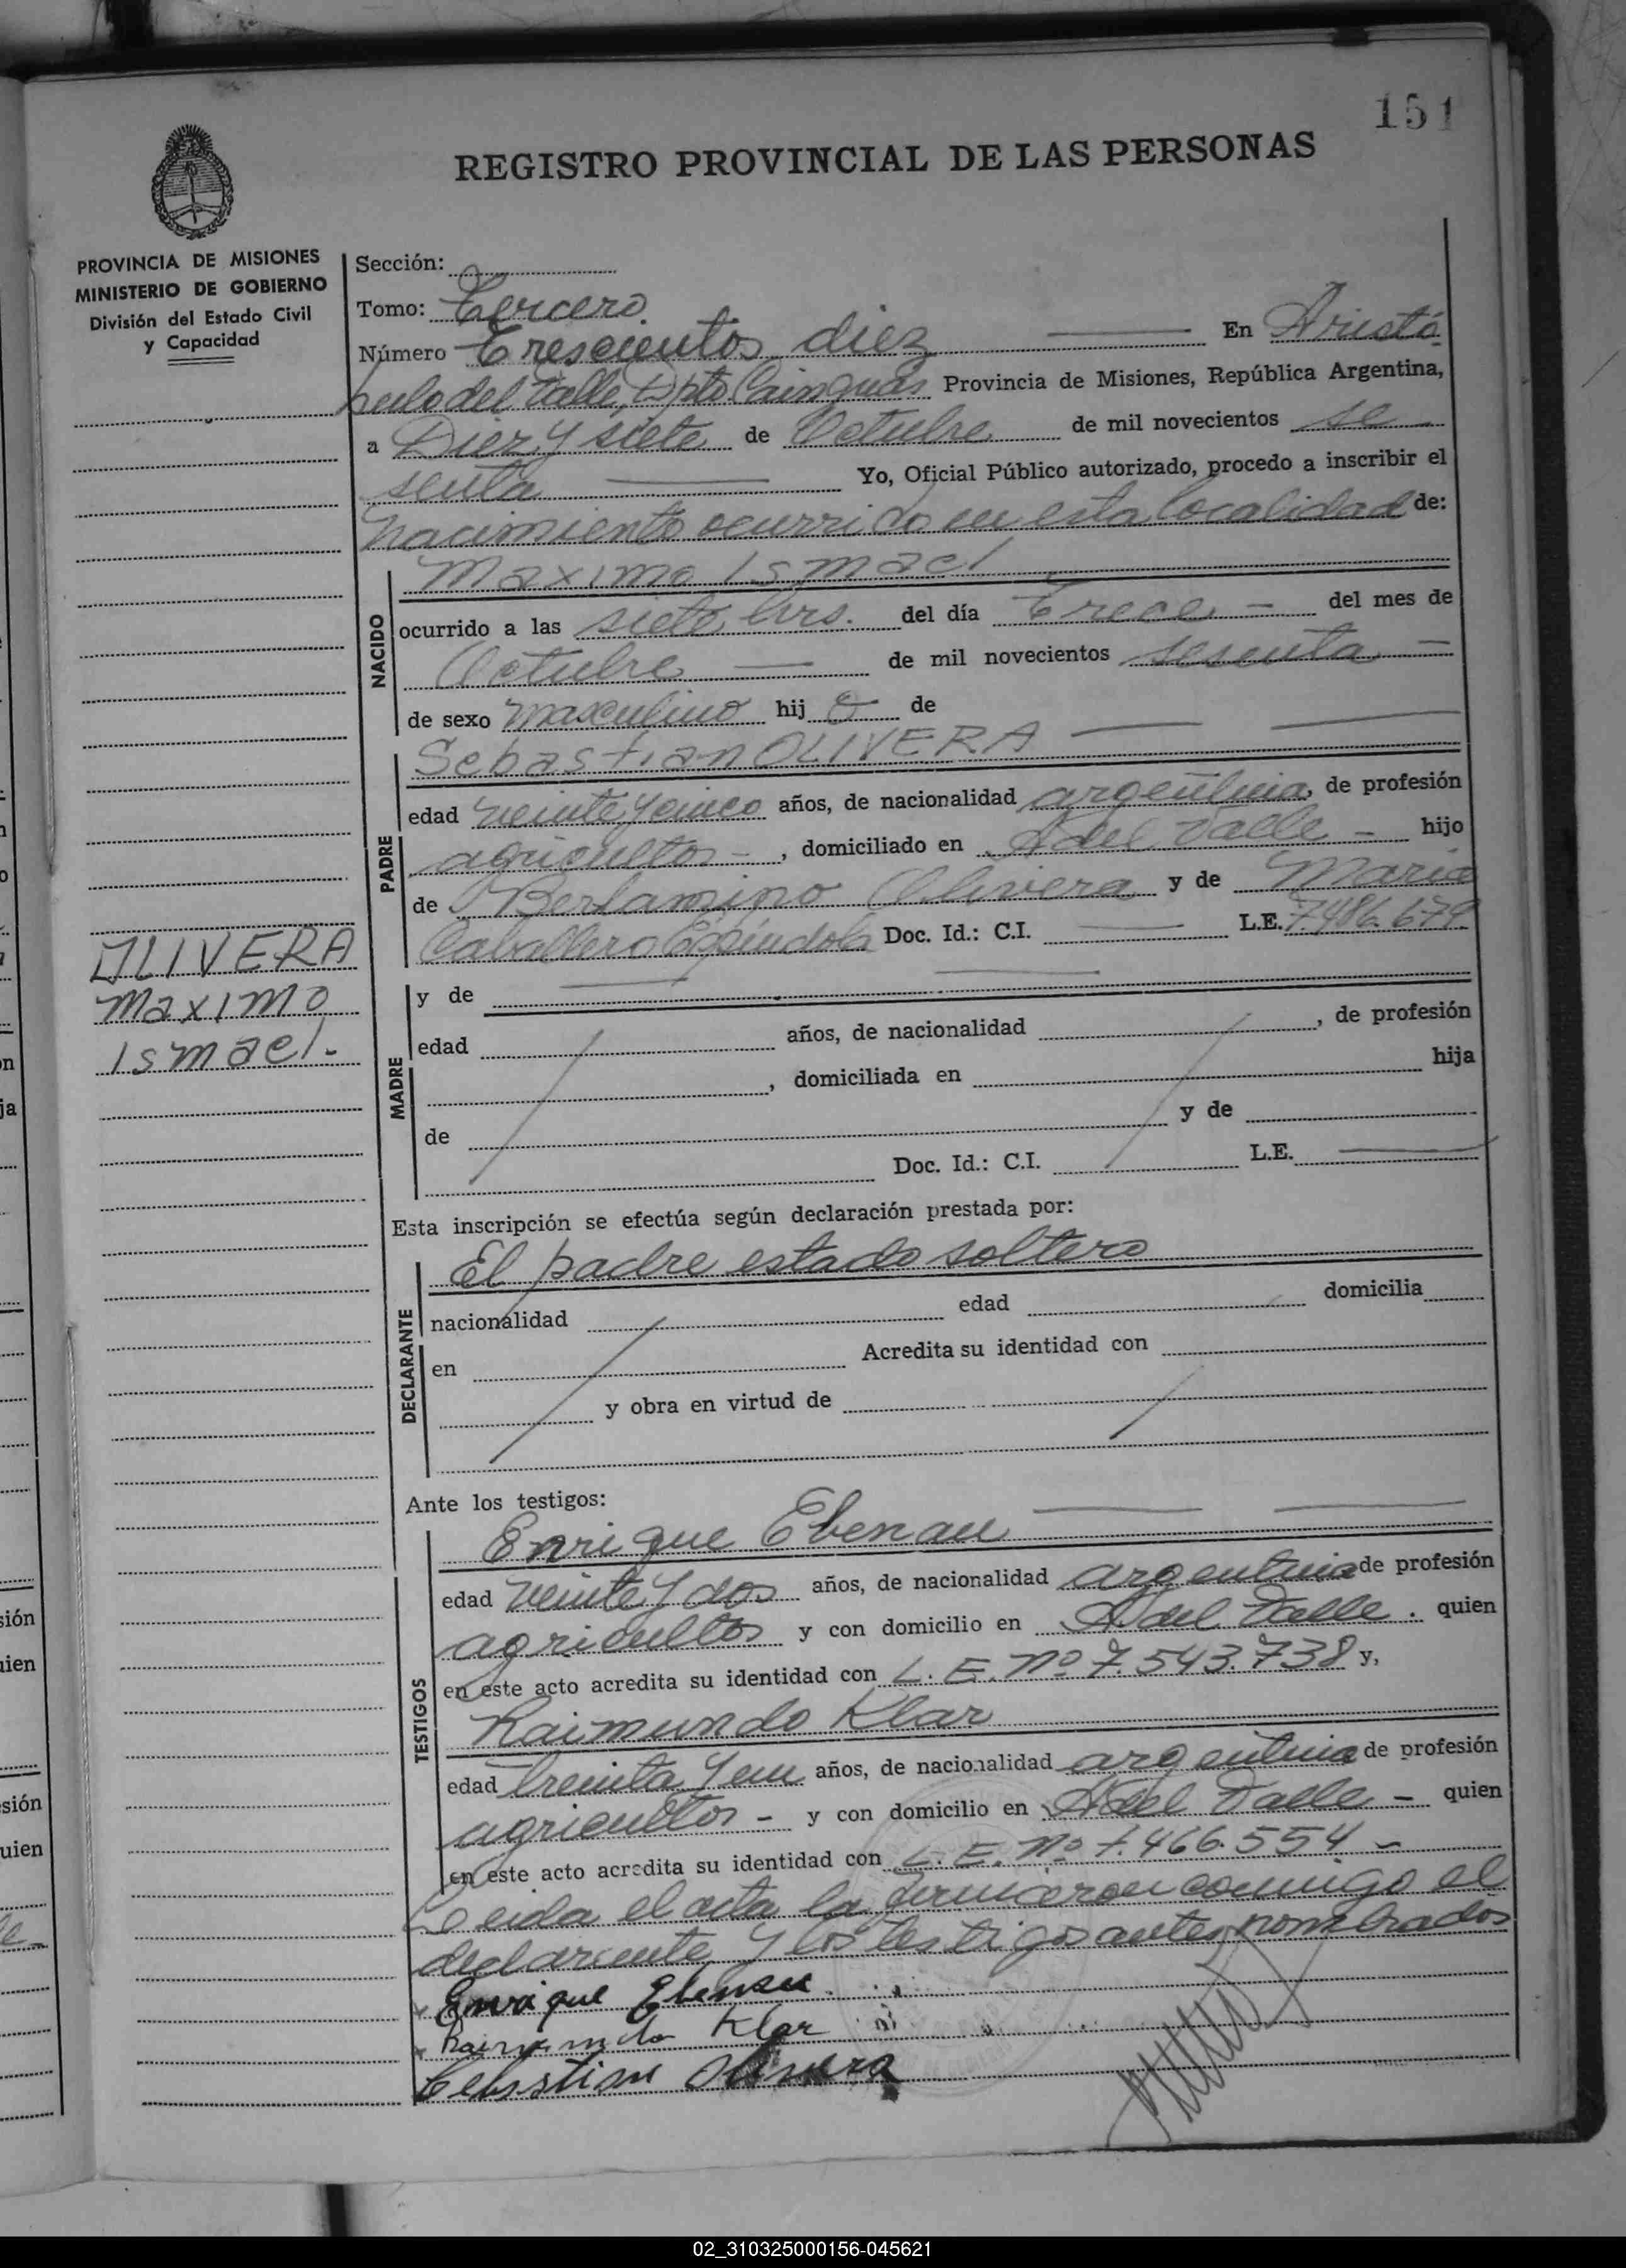 151
REGISTRO PROVINCIAL DE LAS PERSONAS
PROVINCIA DE MISIONES
MINISTERIO DE GOBIERNO
División del Estado Civil
y Capacidad
Sección:
Tomo: Tercero
Número Trescientos diez En Aristó
bulo del Valle, Dpto Cainguás Provincia de Misiones, República Argentina,
a Diez y siete de Octubre de mil novecientos se
senta Yo, Oficial Público autorizado, procedo a inscribir el
nacimiento ocurrido en esta localidad de:
NACIDO
Maximo Ismael
ocurrido a las siete hrs. del día Trece del mes de
Octubre de mil novecientos sesenta
de sexo masculino hij o de
PADRE
Sebastian OLIVERA
edad veinte y cinco años, de nacionalidad argentina, de profesión
agricultor, domiciliado en A del Valle hijo
de Berlamino Olivera y de Maria
Caballero Espindola Doc. Id.: C.I. L.E. 7.486.679
OLIVERA
Maximo
Ismael.
MADRE
y de
edad años, de nacionalidad , de profesión
, domiciliada en hija
de y de
Doc. Id.: C.I. L.E.
Esta inscripción se efectúa según declaración prestada por:
DECLARANTE
El padre estado soltero
nacionalidad edad domicilia
en Acredita su identidad con
y obra en virtud de
Ante los testigos:
TESTIGOS
Enrique Ebenau
edad veinte y dos años, de nacionalidad argentina de profesión
agricultor y con domicilio en A del Valle. quien
en este acto acredita su identidad con L. E. Nº 7.543.738 y,
Raimundo Klar
edad treinta y un años, de nacionalidad argentina de profesión
agricultor - y con domicilio en A del Valle - quien
en este acto acredita su identidad con L. E. Nº 7.466.554 -
Leida el acta la firmaron conmigo el
declarante y los testigos antes nombrados
Enrique Ebenau
Raimundo Klar
Olivera
02_310325000156-045621